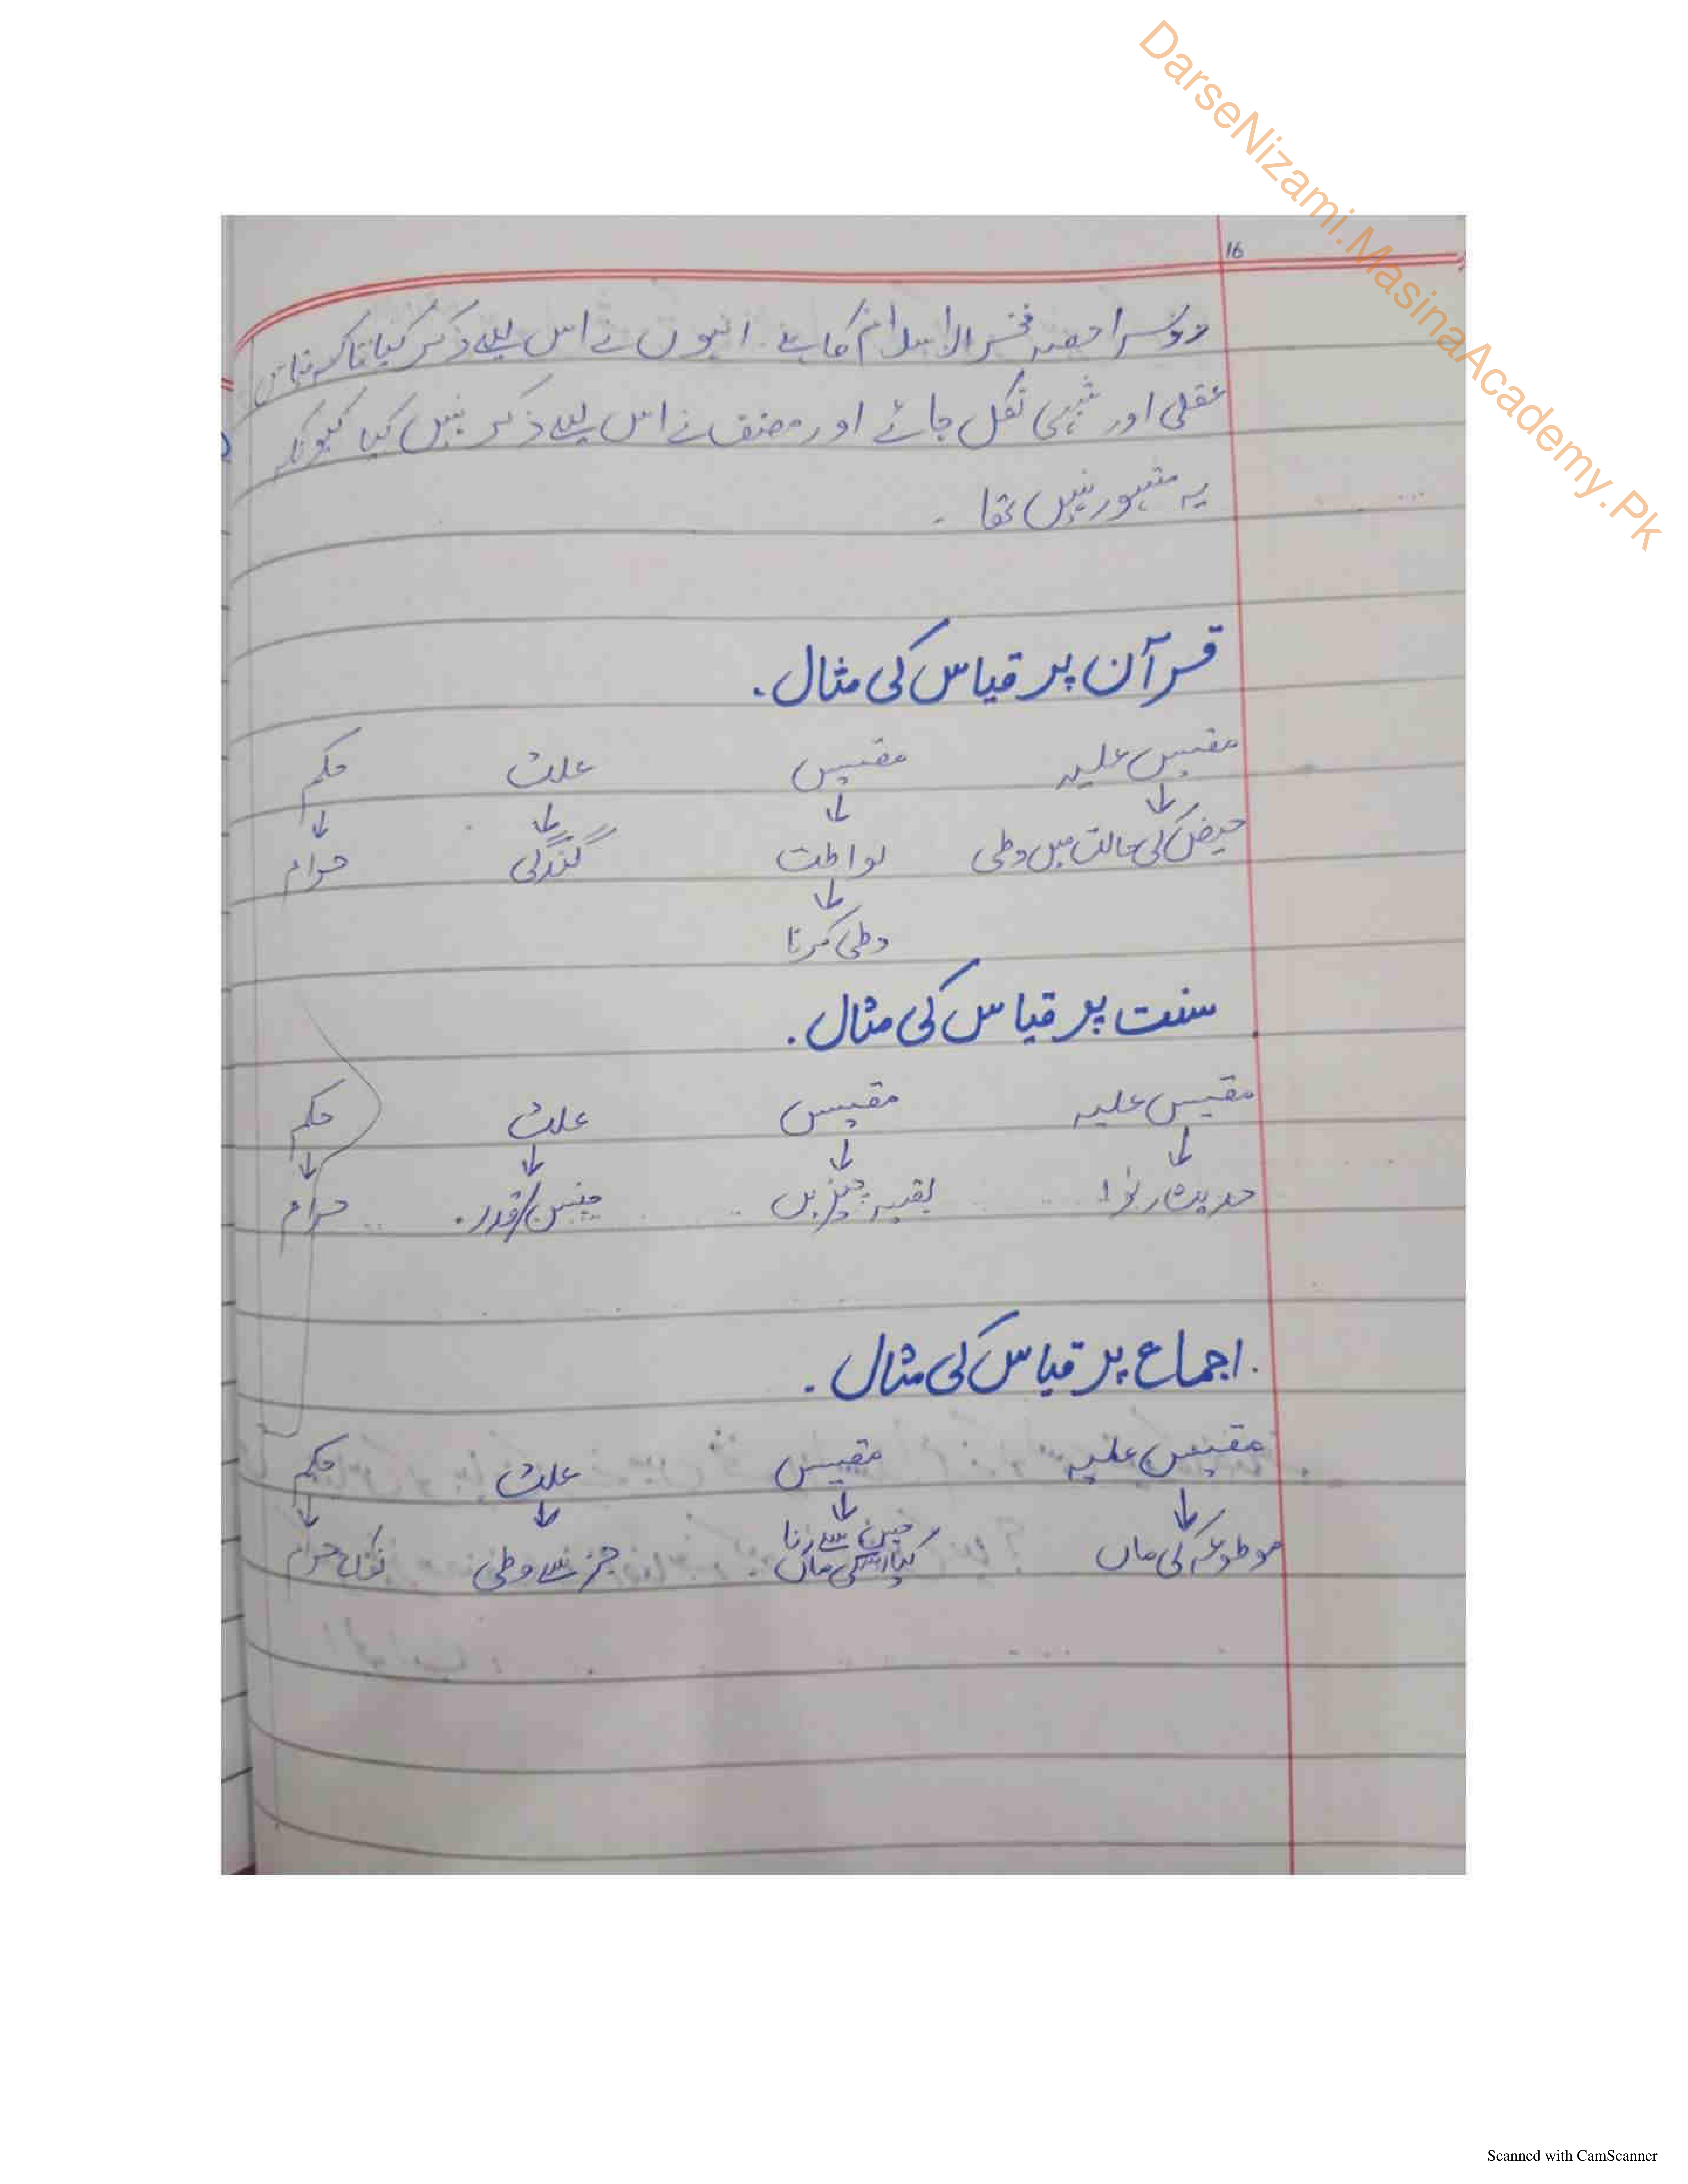 DarseNizami.MasinaAcademy.Pk
16
دوسرا حصہ فخر الاسلام کا ہے۔ انہوں نے اس لیے ذکر کیا تاکہ قیاس
عقلی اور شبہی نکل جائے اور مصنف نے اس لیے ذکر نہیں کیا کیونکہ
یہ مشہور نہیں تھا۔
قرآن پر قیاس کی مثال۔
مقیس علیہ مقیس علت حکم
↓ ↓ ↓ ↓
حیض کی حالت میں وطی لواطت گندگی حرام
↓
وطی کرنا
سنت پر قیاس کی مثال۔
مقیس علیہ مقیس علت حکم
↓ ↓ ↓ ↓
حدیث ربوٰا بقیہ چیزیں جنس/قدر۔ حرام
اجماع پر قیاس کی مثال۔
مقیس علیہ مقیس علت حکم
↓ ↓ ↓ ↓
موطوءہ کی ماں جس سے زنا کیا اسکی ماں جز سے وطی حرام
Scanned with CamScanner